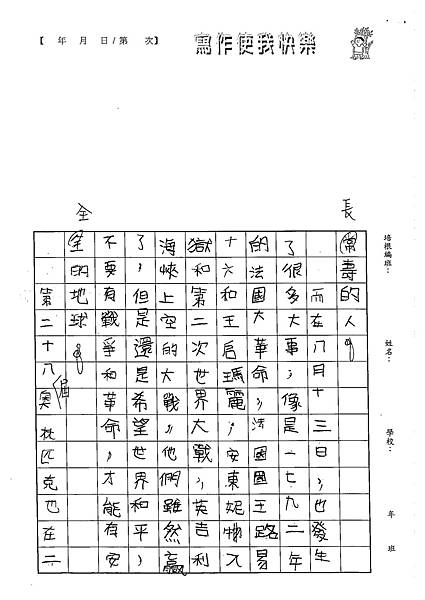 【 年 月 日/第 次】
寫作使我快樂
培根編班：
姓名：
學校：
年 班
長
常壽的人。
而在八月十三日，也發生
了很多大事，像是一七九二年
的法國大革命，法國國王路易
十六和王后瑪麗，安東妮物入
獄和第二次世界大戰，英吉利
海峽上空的大戰，他們雖然贏
了，但是還是希望世界和平，
不要有戰爭和革命，才能有安
全
的地球。
第二十八屆奧林匹克也在二